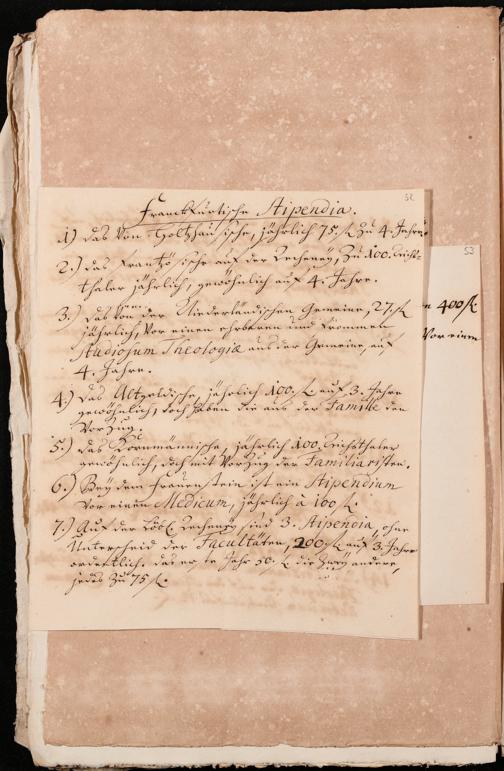 52
Franckfurtische Stipendia.
1.) Das Von Holtzhausische, jährlich 75. fl. Zu 4. Jahren.
2.) das Frantzösische auf der Recheney, Zu 100. Reichs-
thaler jährlich, gewöhnlich auf 4. Jahre.
3.) das von der Niederländischen Gemeine, 27. fl.
jährlich, vor einen ehrbaren und frommen
Studiosum Theologiæ aus der Gemeine, auf
4. Jahre.
4.) Das Altgeldische, jährlich 100. fl. auf 3. Jahre
gewöhnlich, doch haben die aus der Famille den
Vorzug.
5.) das Kornmännische, jährlich 100. Reichsthaler
gewöhnlich, doch mit Vorzug der Familiaristen.
6.) Bey dem Frauenstein ist ein Stipendium
vor einen Medicum, jährlich à 100 fl.
7.) Auf der Löbl. Recheney sind 3. Stipendia, ohne
Unterscheid der Facultäten, 200. fl. auf 3. Jahre
ordentlich. das erste Jahr 50. fl. die zwey andere,
jedes zu 75 fl.
53
400 fl
Vor einen